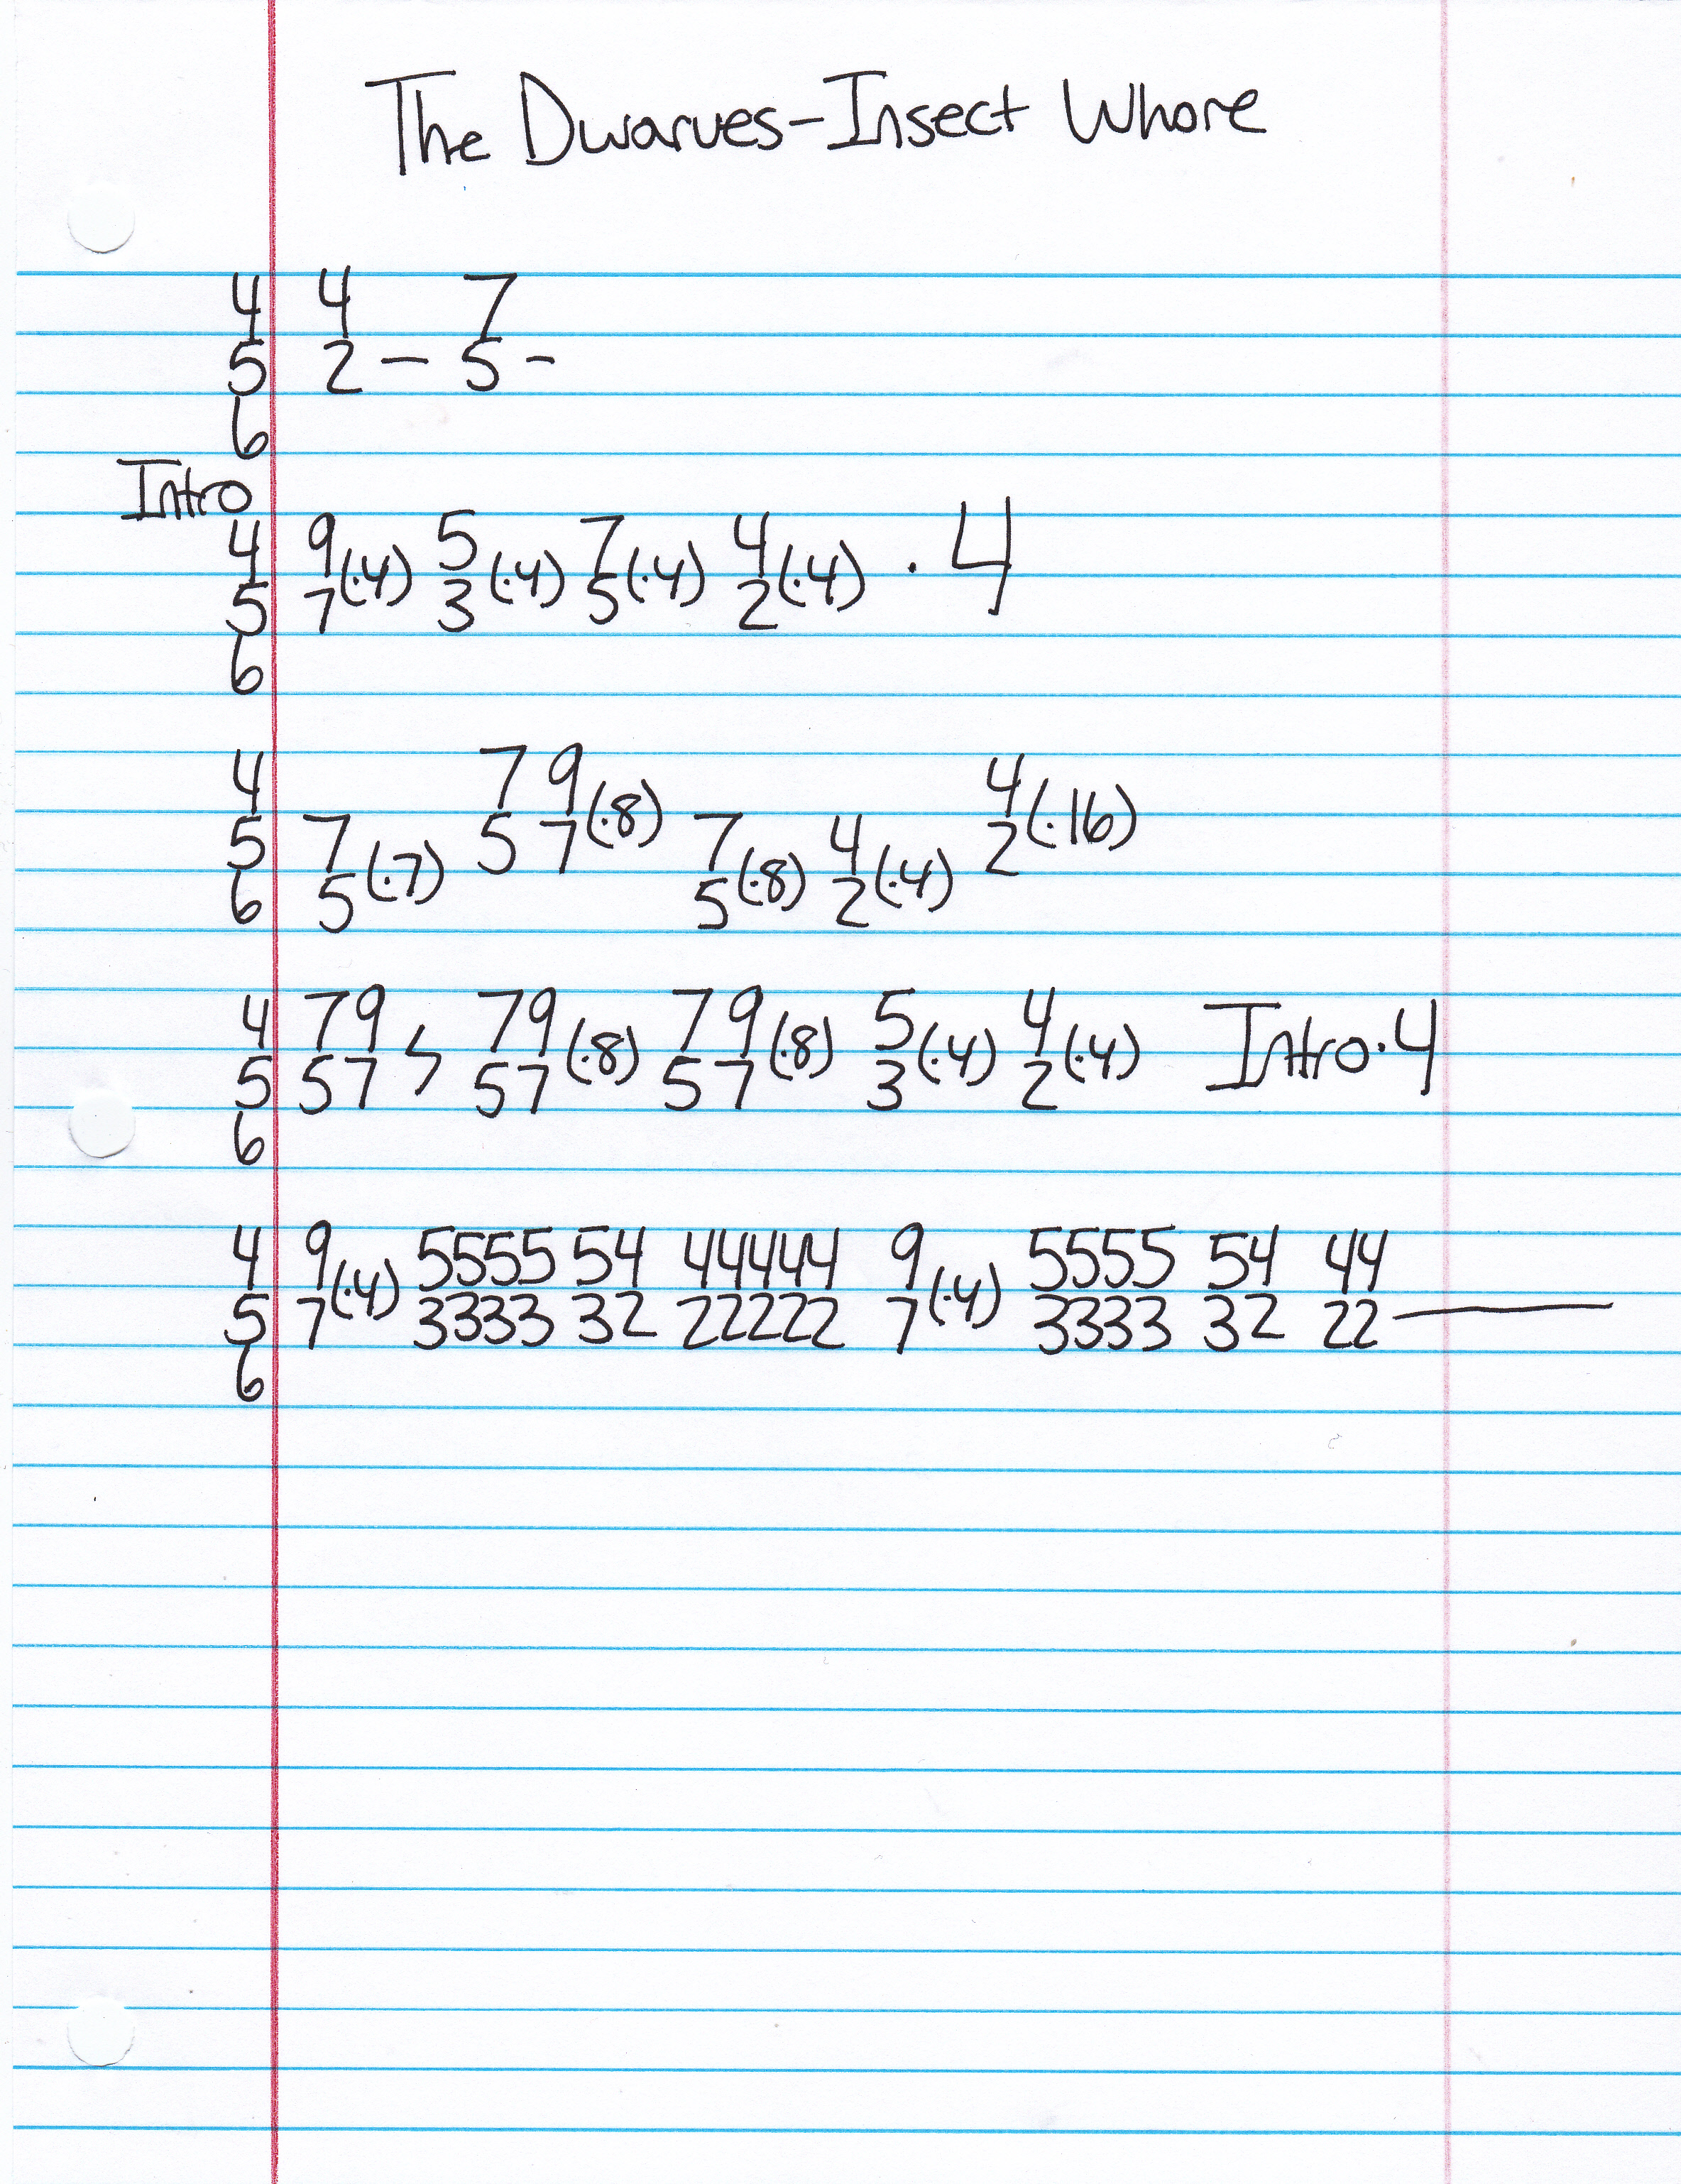 The Dwarves-Insect Whore
4 4 7
5 2 — 5 -
6
Intro
4 9 5 7 4
5 7(·4) 3(·4) 5(·4) 2(·4) · 4
6
4 7 9 4
5 7 5 7(·8) 7 4 2(·16)
6 5(·7) 5(·8) 2(·4)
4 79 79 79 5 4
5 57 57(·8) 57(·8) 3(·4) 2(·4) Intro·4
6
4 9 5555 54 44444 9 5555 54 44
5 7(·4) 3333 32 22222 7(·4) 3333 32 22—
6